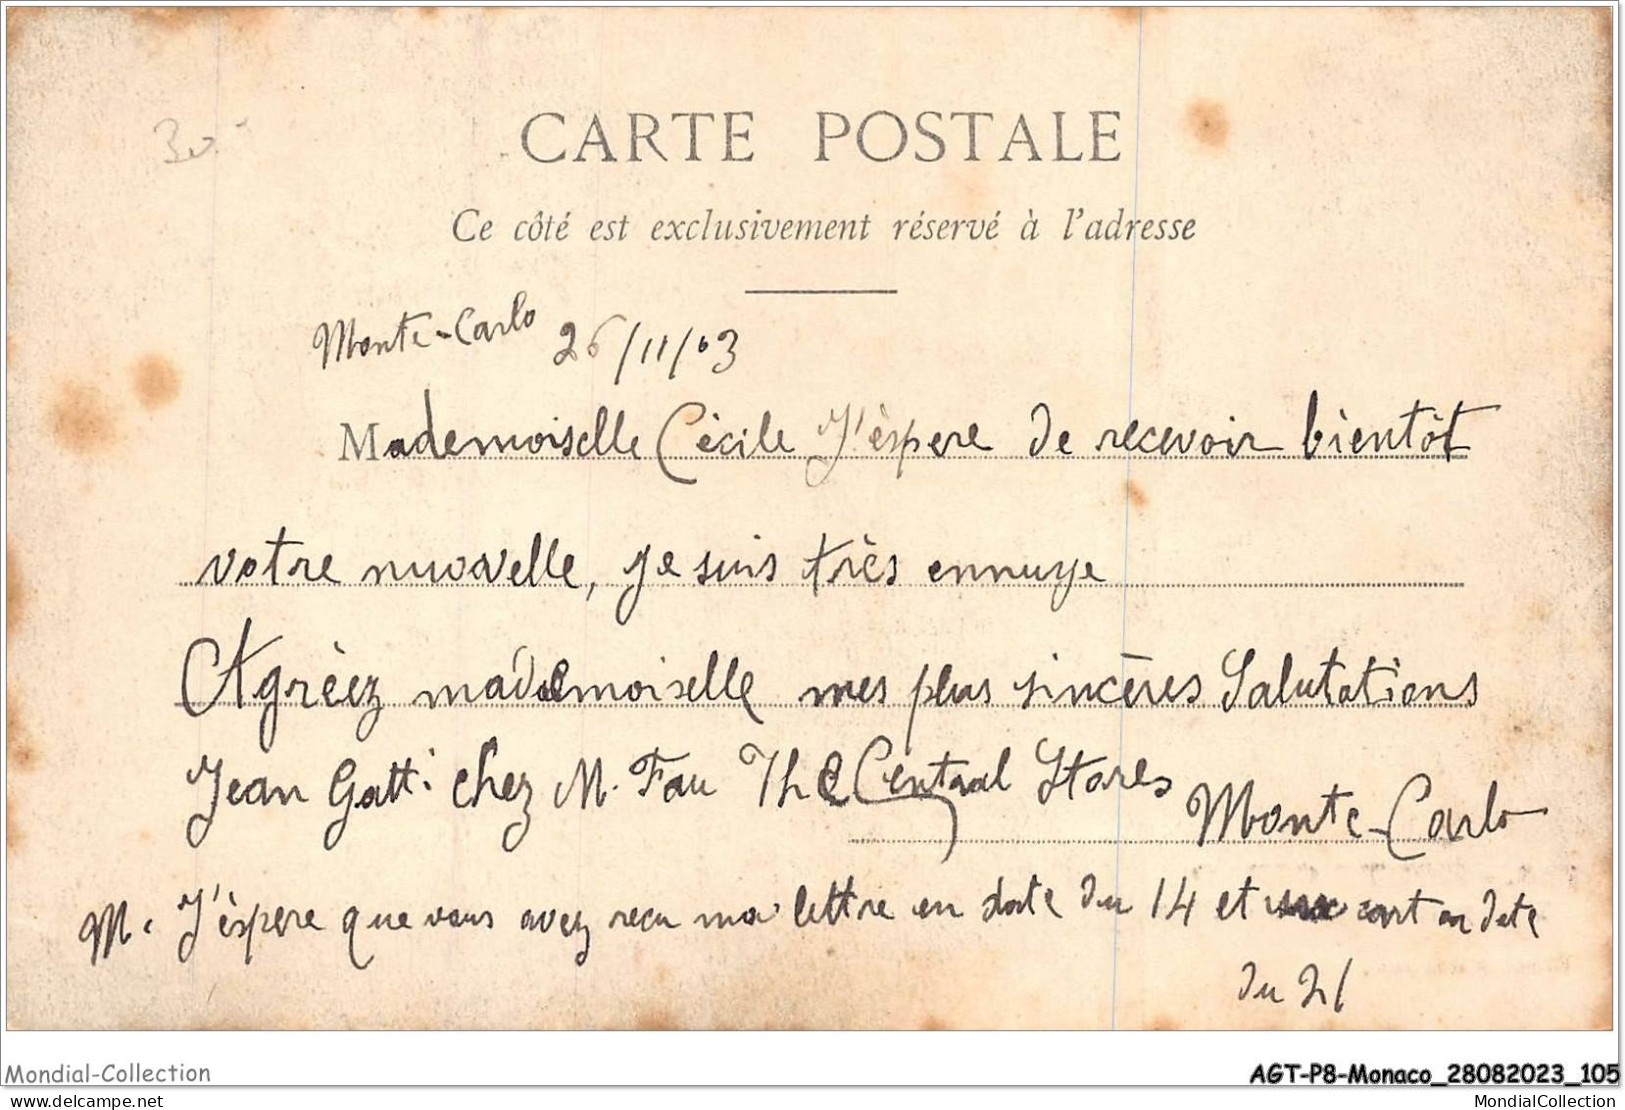 30
CARTE POSTALE
Ce côté est exclusivement réservé à l'adresse
Monte-Carlo 26/11/03
Mademoiselle Cécile J'èspere de recevoir bientôt
votre nuovelle, je suis très ennuye
Agrèez mademoiselle mes plus sincères Salutations
Jean Gatti chez M. Fau The Central Stores
Monte-Carlo
M. J'èspere que vous avez recu ma lettre en date du 14 et cart en date
du 21
Mondial-Collection
AGT-P8-Monaco_28082023_105
delcampe.net
MondialCollection